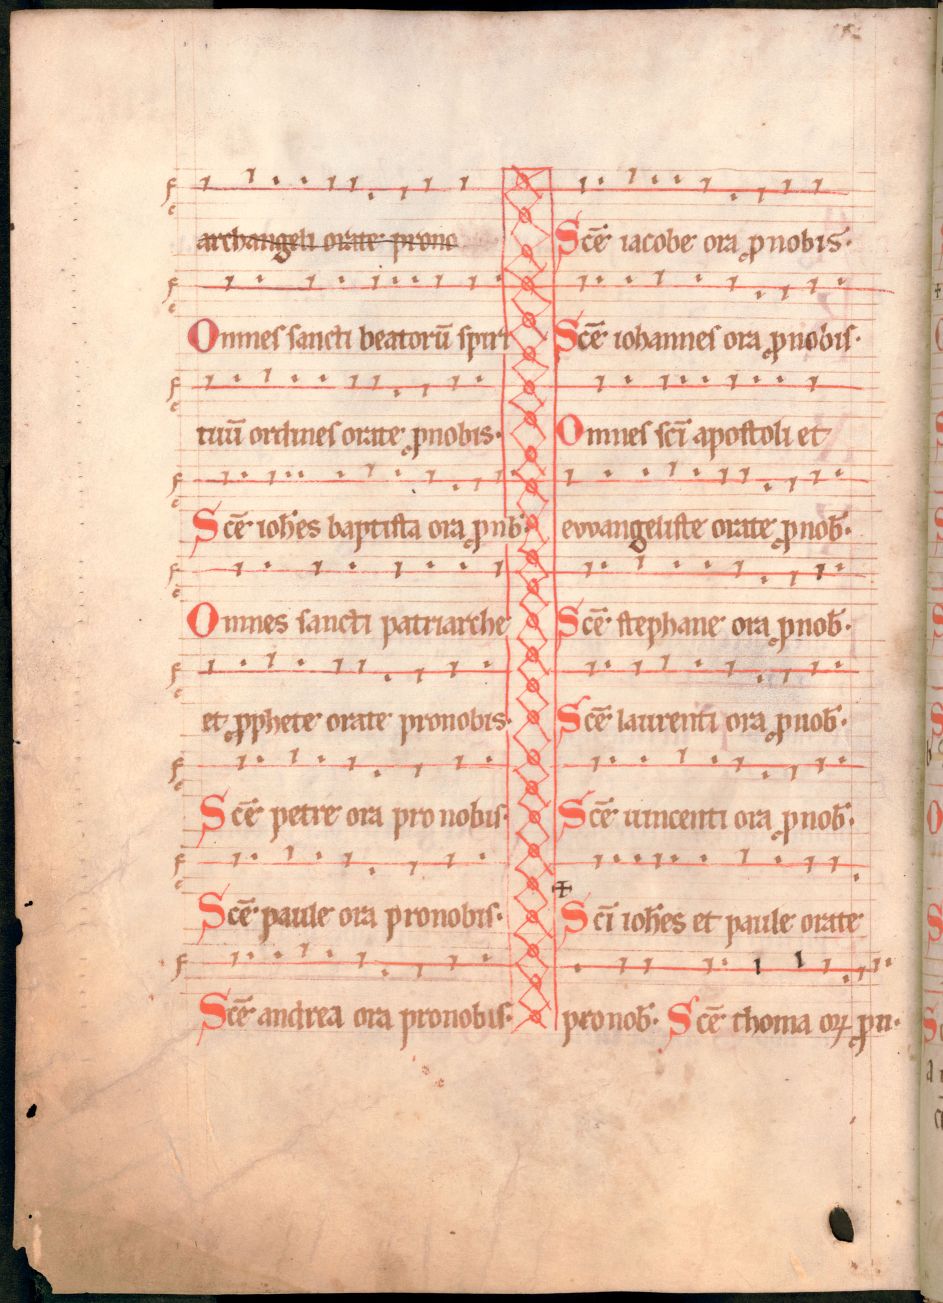 archangeli orate prono
Omnes sancti beatorū spiri
tuū ordines orate ꝓnobis·
Scē ioh̄es baptista ora ꝓnb̄·
Omnes sancti patriarche
et ꝓphete orate pronobis·
Scē petre ora pro nobis·
Scē paule ora pronobis·
Scē andrea ora pronobis·
Scē iacobe ora ꝓnobis·
Scē iohannes ora ꝓnobis·
Omnes scī apostoli et
ewangeliste orate ꝓnob̄·
Scē stephane ora ꝓnob̄·
Scē laurenti ora ꝓnob̄·
Scē uincenti ora ꝓnob̄·
Scī ioh̄es et paule orate
pronob̄· Scē thoma oꝝ ꝓn·